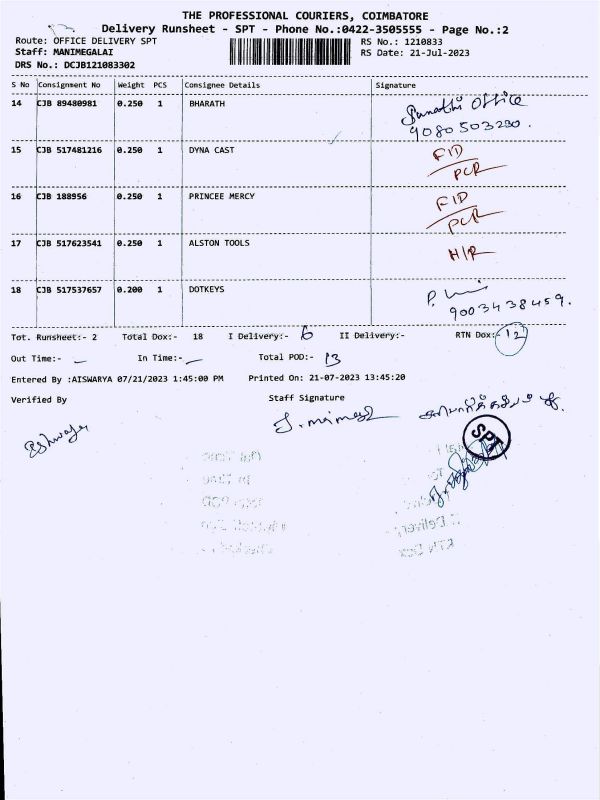 THE PROFESSIONAL COURIERS, COIMBATORE
Delivery Runsheet - SPT - Phone No.:0422-3505555 - Page No.:2
Route: OFFICE DELIVERY SPT RS No.: 1210833
Staff: MANIMEGALAI RS Date: 21-Jul-2023
DRS No.: DCJB121083302
S No Consignment No Weight PCS Consignee Details Signature
14 CJB 89480981 0.250 1 BHARATH Office
9080503230.
15 CJB 517481216 0.250 1 DYNA CAST FID
PCR
16 CJB 188956 0.250 1 PRINCEE MERCY FID
PCR
17 CJB 517623541 0.250 1 ALSTON TOOLS H/R
18 CJB 517537657 0.200 1 DOTKEYS
9003438459.
Tot. Runsheet:- 2 Total Dox:- 18 I Delivery:- 6 II Delivery:- RTN Dox:- 12
Out Time:- — In Time:- — Total POD:- 13
Entered By :AISWARYA 07/21/2023 1:45:00 PM Printed On: 21-07-2023 13:45:20
Verified By Staff Signature
SPT